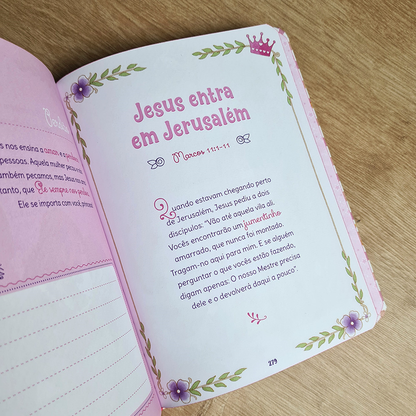 nos ensina a amar e a
pessoas. Aquela mulher
também pecamos, mas Jesus nos
tanto, que Se sempre nos
Ele se importa com você,
Jesus entra
em Jerusalém
Marcos 11:1-11
Quando estavam chegando perto
de Jerusalém, Jesus pediu a dois
discípulos: “Vão até aquela vila ali.
Vocês encontrarão um jumentinho
amarrado, que nunca foi montado.
Tragam-no aqui para mim. E se alguém
perguntar o que vocês estão fazendo,
digam apenas: O nosso Mestre precisa
dele e o devolverá daqui a pouco”.
279